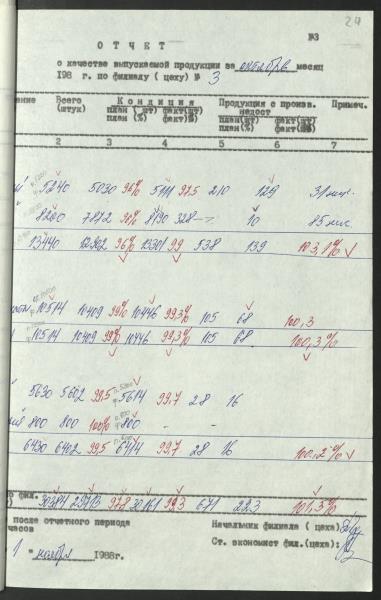 24
№3
ОТЧЕТ
о качестве выпускаемой продукции за октябрь месяц
198 г. по филиалу (цеху) № 3
ение Всего (штук) Кондиция план (шт) план (%) факт(шт) факт(%) Продукция с произв. недост план(шт) план(%) факт(шт) факт(%) Примеч.
2 3 4 5 6 7
5240 5030 96% 5111 97,5 210 129
8200 7872 96% 8190 328 10
13440 12902 96% 13301 99 538 139 103,1%
10514 10409 99% 10446 99,3% 105 68 100,3
10514 10409 99% 10446 99,3% 105 68 100,3%
5630 5602 99,5 5614 99,7 28 16
800 800 100% 800 - -
6430 6402 99,5 6414 99,7 28 16 100,2%
фил. 30384 29713 97,8 30161 99,3 671 223 101,3%
после отчетного периода Начальник филиала ( цеха)
часов Ст. экономист фил.(цеха):
1 " ноября 1988г.